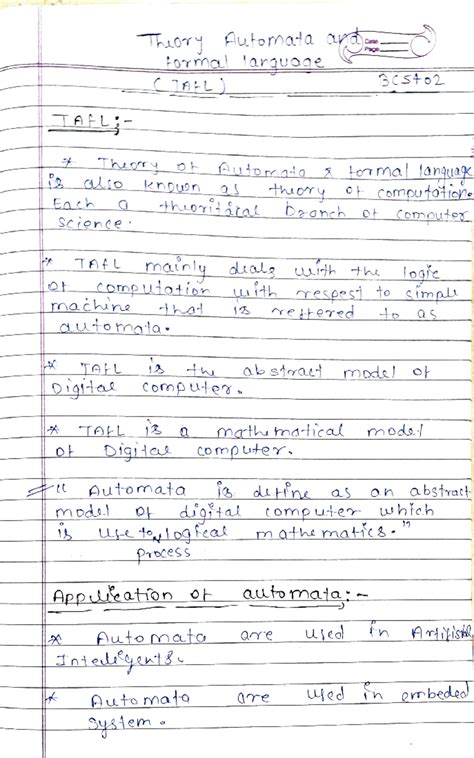 Theory Automata and
formal language
Date
Page
(TAFL)
3CS402
TAFL:-
* Theory of Automata & formal language
is also known as theory of computation.
Each a theoritical branch of computer
science.
* TAFL mainly deals with the logic
of computation with respest to simple
machine that is reffered to as
automata.
* TAFL is the abstract model of
Digital computer.
* TAFL is a mathematical model
of Digital computer.
" Automata is define as an abstract
model of digital computer which
is use to logical mathematics."
process
Application of automata:-
* Automata are used in
* Automata are used in embeded
system.